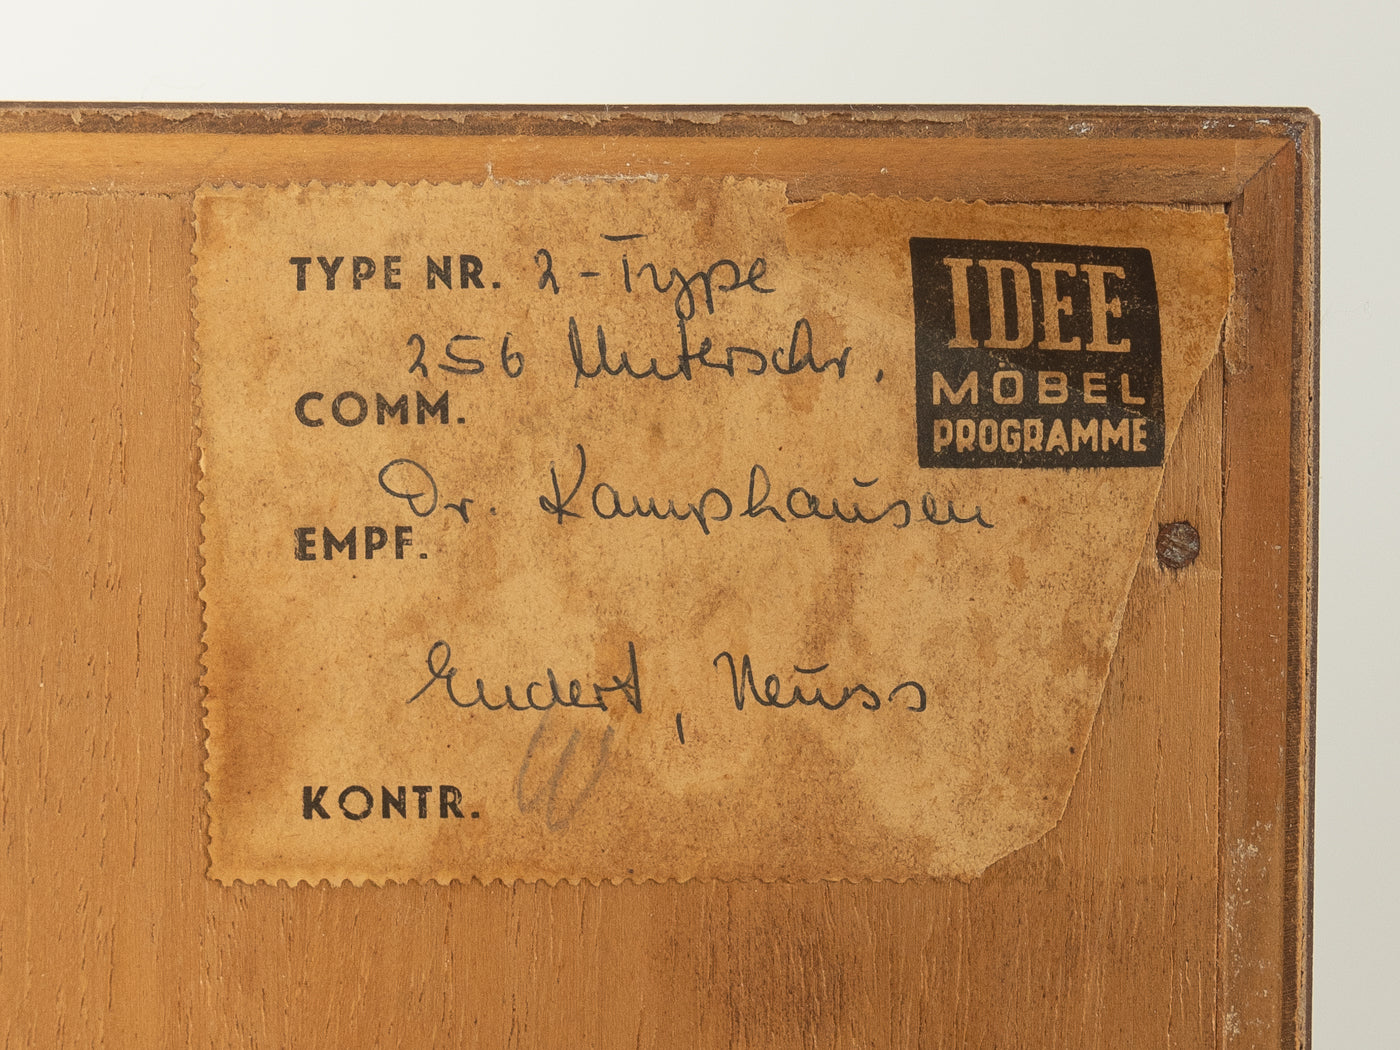 TYPE NR. 2-Type
256 Unterschr.
COMM.
Dr. Kamphausen
EMPF.
Endert, Neuss
KONTR.
IDEE
MÖBEL
PROGRAMME